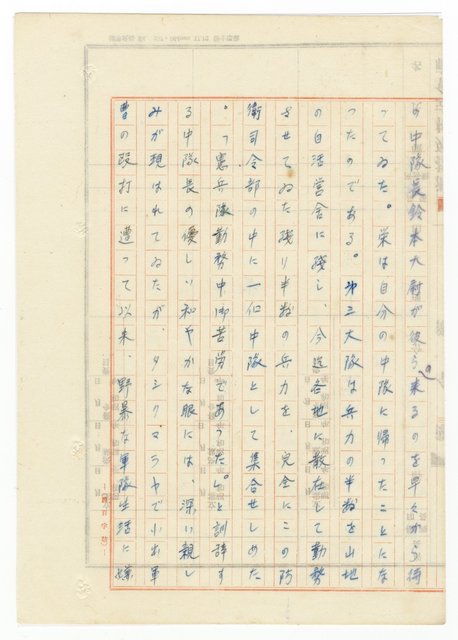 の中隊長鈴本大尉が彼ら来るのを早くから待
ってゐた。栄は自分の中隊に帰ったことにな
ったのである。第三大隊は兵力の半数を山地
の自活営舎に残し、今迄各地に散在して勤務
させてゐた残り半数の兵力を、完全にこの防
衛司令部の中に一個中隊として集合せしめた
。「憲兵隊勤務中御苦労であった。」と訓辞す
る中隊長の優しい和やかな眼には、深い親し
みが現はれてゐたが、タシクマラヤで小出軍
曹の殴打に遭って以来、野暴な軍隊生活に嫌